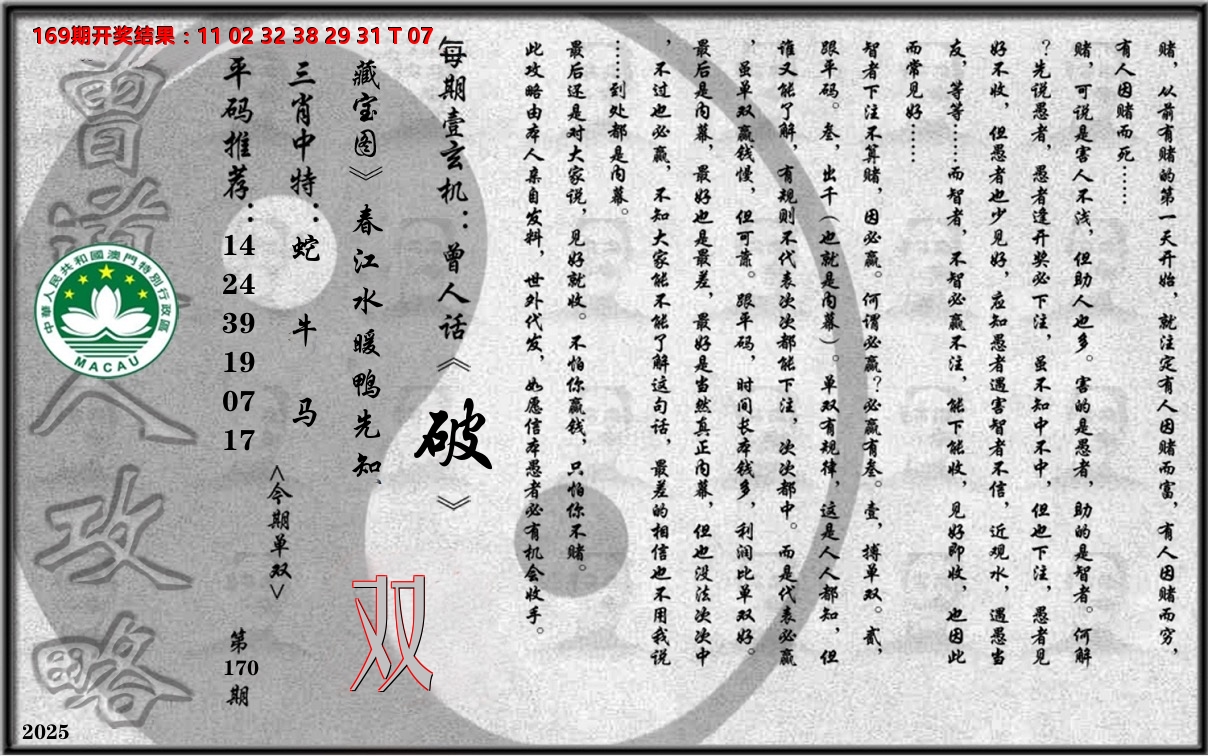 169期开奖结果：11 02 32 38 29 31 T 07
赌，从前有赌的第一天开始，就注定有人因赌而富，有人因赌而穷，
有人因赌而死……
赌，可说是害人不浅，但助人也多。害的是愚者，助的是智者。何解
？先说愚者，愚者逢开奖必下注，虽不知中不中，但也下注，愚者见
好不收，但愚者也少见好，应知愚者遇害智者不信，近观水，遇愚当
友，等等……而智者，不智必赢不注，能下能收，见好即收，也因此
而常见好……
智者下注不算赌，因必赢。何谓必赢？必赢有叁。壹，搏单双。贰，
跟平码。叁，出千（也就是内幕）。单双有规律，这是人人都知，但
谁又能了解，有规则不代表次次都能下注，次次都中。而是代表必赢
，虽单双赢钱慢，但可靠。跟平码，时间长本钱多，利润比单双好。
最后是内幕，最好也是最差，最好是当然真正内幕，但也没法次次中
，不过也必赢，不知大家能不能了解这句话，最差的相信也不用我说
……到处都是内幕。
最后还是对大家说，见好就收。不怕你赢钱，只怕你不赌。
此攻略由本人亲自发料，世外代发，如愿信本愚者必有机会收手。
每期壹玄机：曾人话《破》
藏宝图》春江水暖鸭先知、
双
三肖中特：蛇 牛 马
<今期单双>
平码推荐：14 24 39 19 07 17
第170期
曾道人攻略
中華人民共和國澳門特別行政區
MACAU
2025